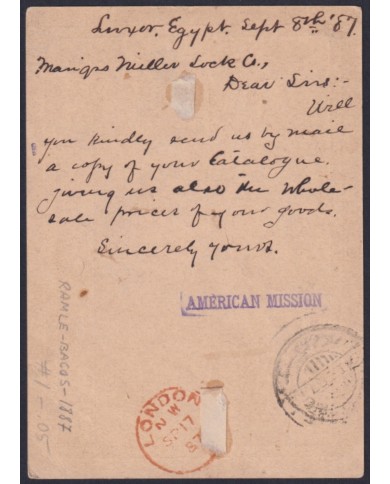 Luxor, Egypt. Sept 8th '87
Miller Lock Co.,
Dear Sirs:-
Will
you kindly send us by mail
a copy of your Catalogue.
giving us also the whole-
sale prices of your goods.
Sincerely yours.
AMERICAN MISSION
RAMLE-BACOS-1887
#1-.05
LONDON
N W
SP 17
87